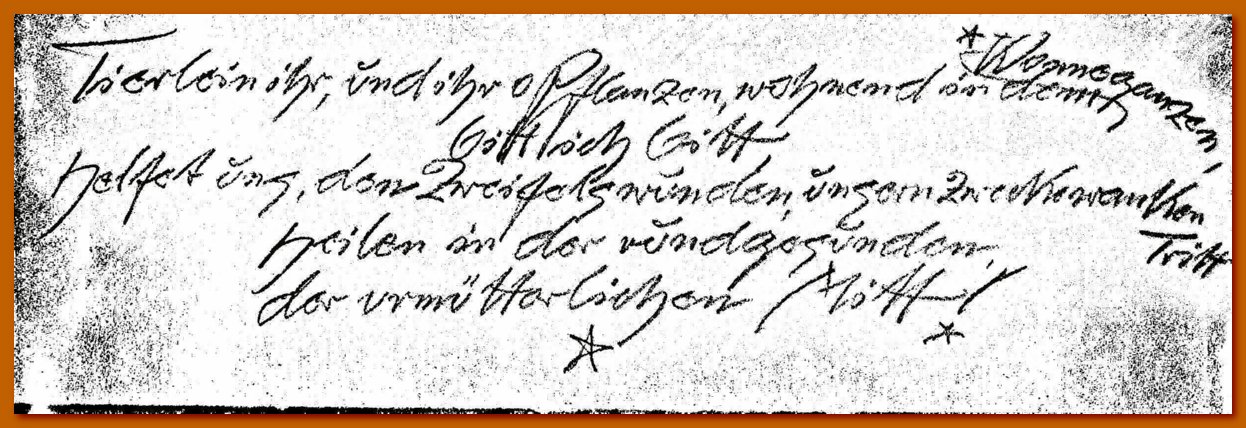 Tierlein ihr, und ihr o Pflanzen, wohnend in dem Wonneganzen,
Göttlich Gitt,
helfet uns, den Zweifelswunden, unsern Zweckewanken Tritt
heilen in der rundgesunden,
der urmütterlichen Mitt!